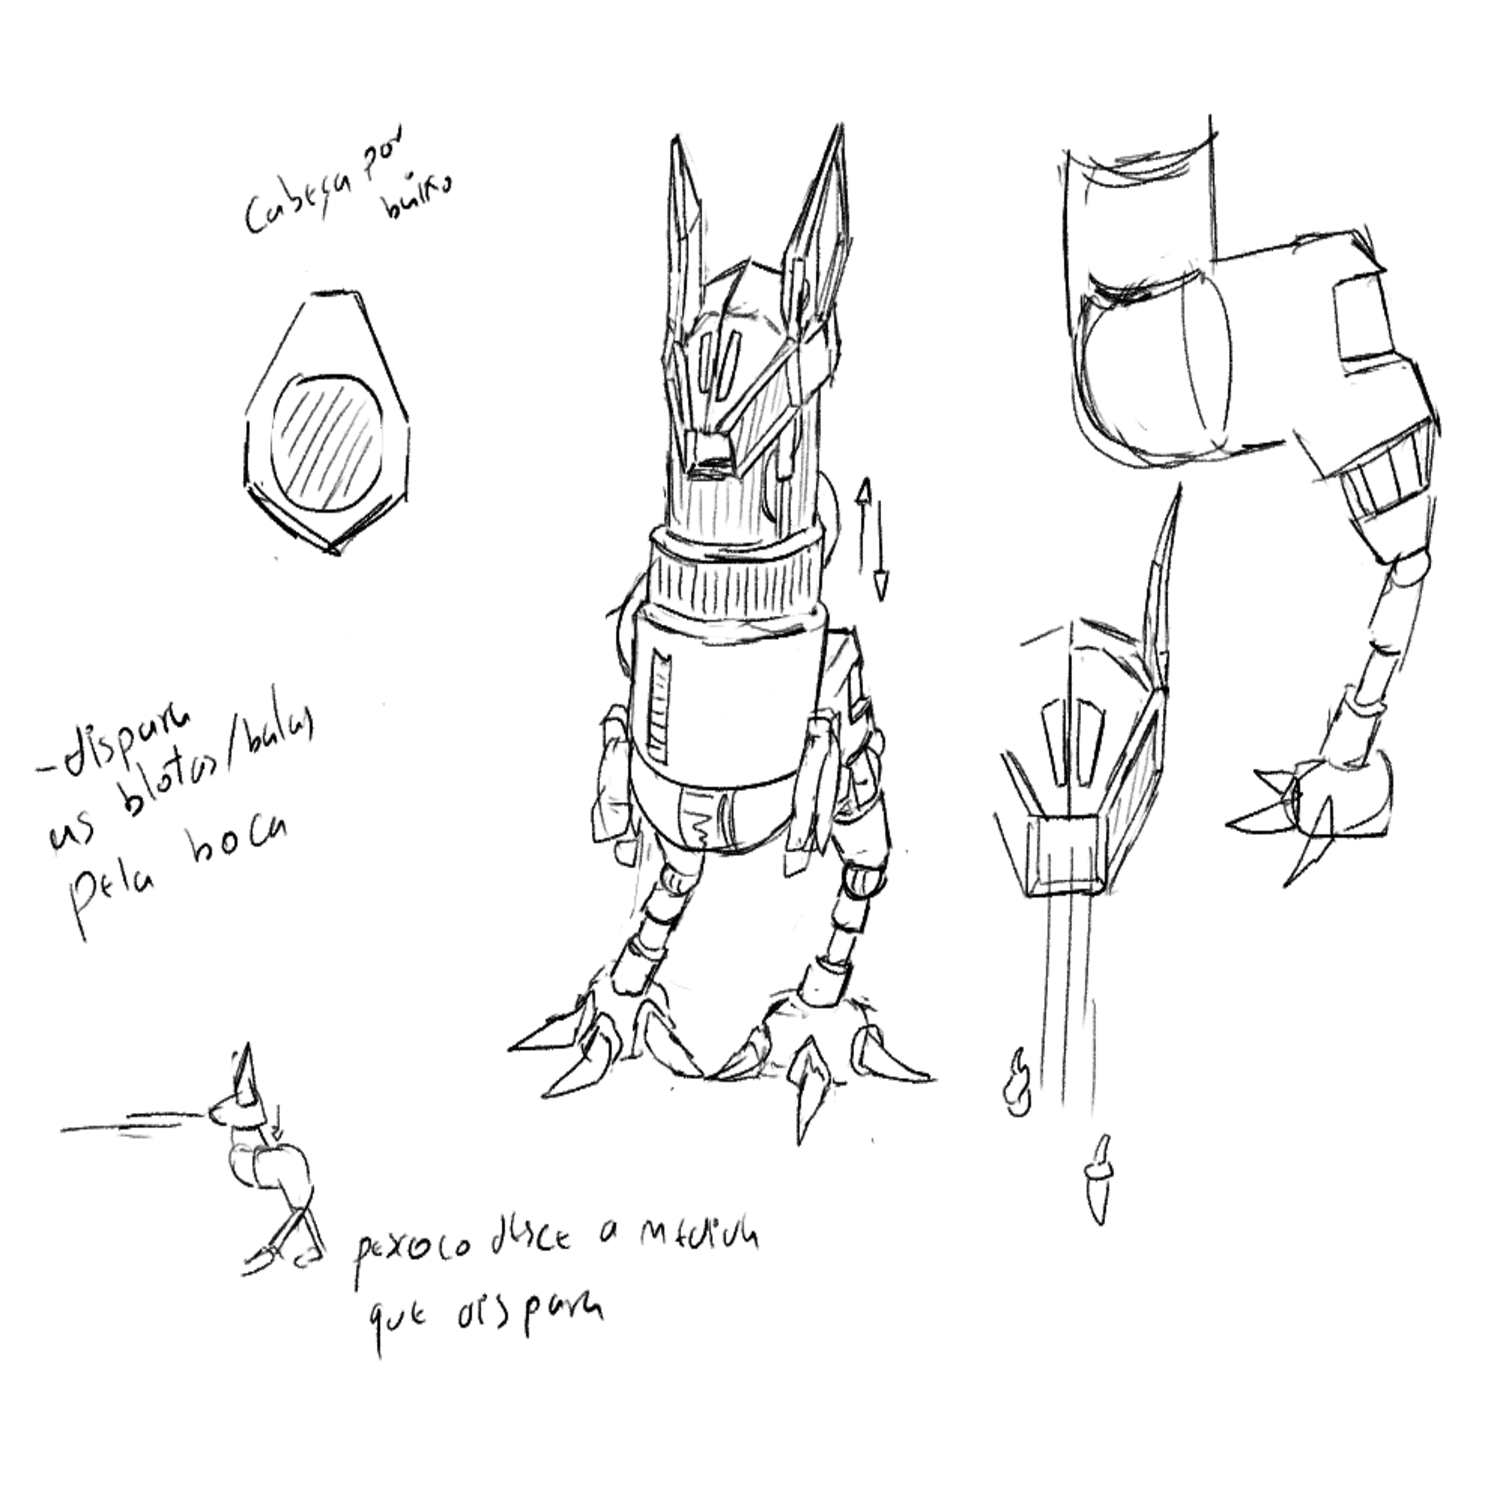 Cabeça por
baixo
-dispara
as blotas/balas
pela boca
pexoco desce a medida
que dispara